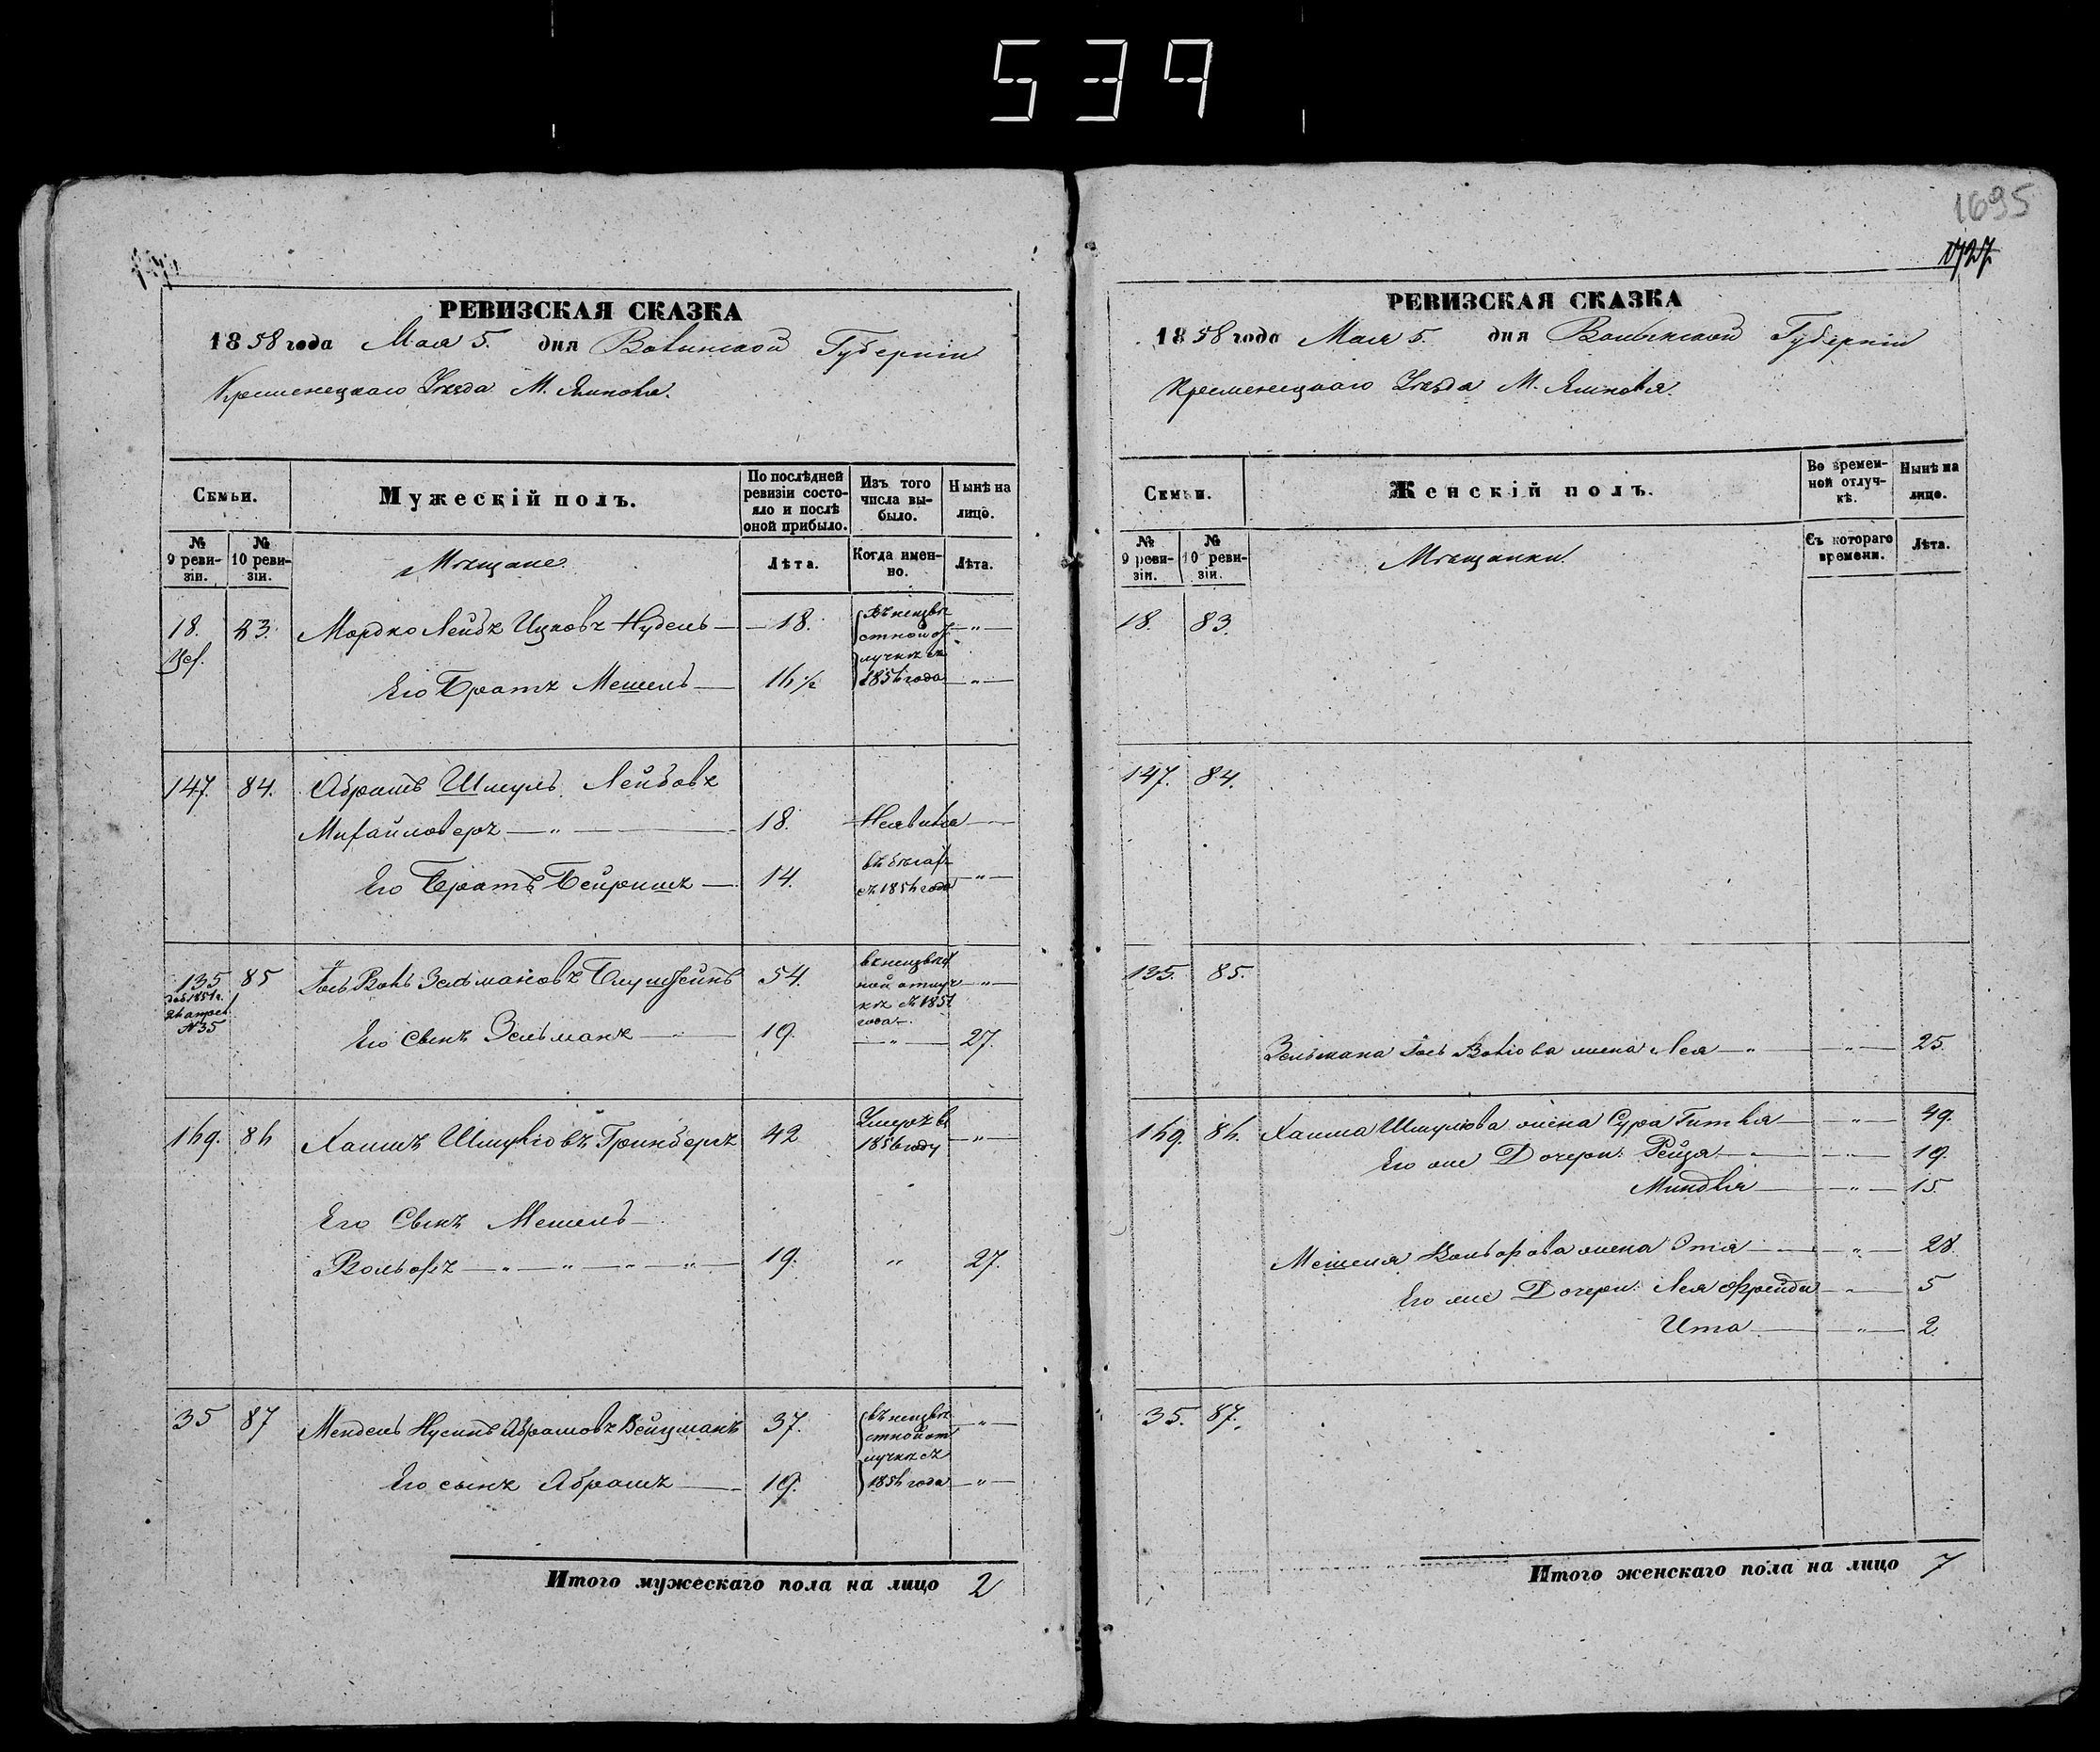 539
РЕВИЗСКАЯ СКАЗКА
1858 года Мая 5. дня Волынской Губерніи
Кременецкаго Уезда М. Ямполя.
Семьи.
Мужескій полъ.
По послѣдней ревизіи состояло и послѣ оной прибыло.
Изъ того числа выбыло.
Нынѣ на лицо.
№ 9 ревизіи.
№ 10 ревизіи.
Мѣщане
Лѣта.
Когда именно.
Лѣта.
18. 83. Мордко Лейбъ Ицковъ Нудель — 18. — „ —
Въ неизвѣстной отлучкѣ съ 1856 года
Его Братъ Мешель — 16 ½ — „ —
147. 84. Абрамъ Шмуль Лейбовъ
18. Неявился
Его Братъ Бейришъ — 14. въ бегахъ съ 1856 года — „ —
135 85 54. в неизвѣстной отлучкѣ съ 1851 года — „ —
№ 35
Его Сынъ Зельманъ — 19. — „ — 27.
169. 86 Хаимъ Шмулiовъ Гринбергъ 42 Умеръ въ 1856 году — „ —
Его Сынъ Мешель —
Вольфъ — „ — „ — „ — „ — 19. „ 27.
35 87 Мендель Нусинъ Абрамовъ Вейцманъ 37. — „ —
въ неизвѣстной отлучкѣ съ 1856 года
Его сынъ Абрамъ — 19. — „ —
Итого мужескаго пола на лицо 2
1695
РЕВИЗСКАЯ СКАЗКА
1858 года Мая 5. дня Волынской Губерніи
Кременецкаго Уезда М. Ямполя.
Семьи.
Женскій полъ.
Во временной отлучкѣ.
Нынѣ на лицо.
№ 9 ревизіи.
№ 10 ревизіи.
Мѣщанки
Съ котораго времени.
Лѣта.
18. 83.
147. 84.
135. 85.
Зельмана Iось Волiова жена Лея — „ — „ — 25.
169. 86. Хаима Шмулiова жена Сура Гитля — „ — 49.
Его же Дочери: Рейзя — „ — 19.
Миндля — „ — 15
Мешеля Вольфова жена Этя — „ — 28.
Его же Дочери: Лея Фрейда — „ — 5
Ита — „ — 2.
35. 87.
Итого женскаго пола на лицо 7